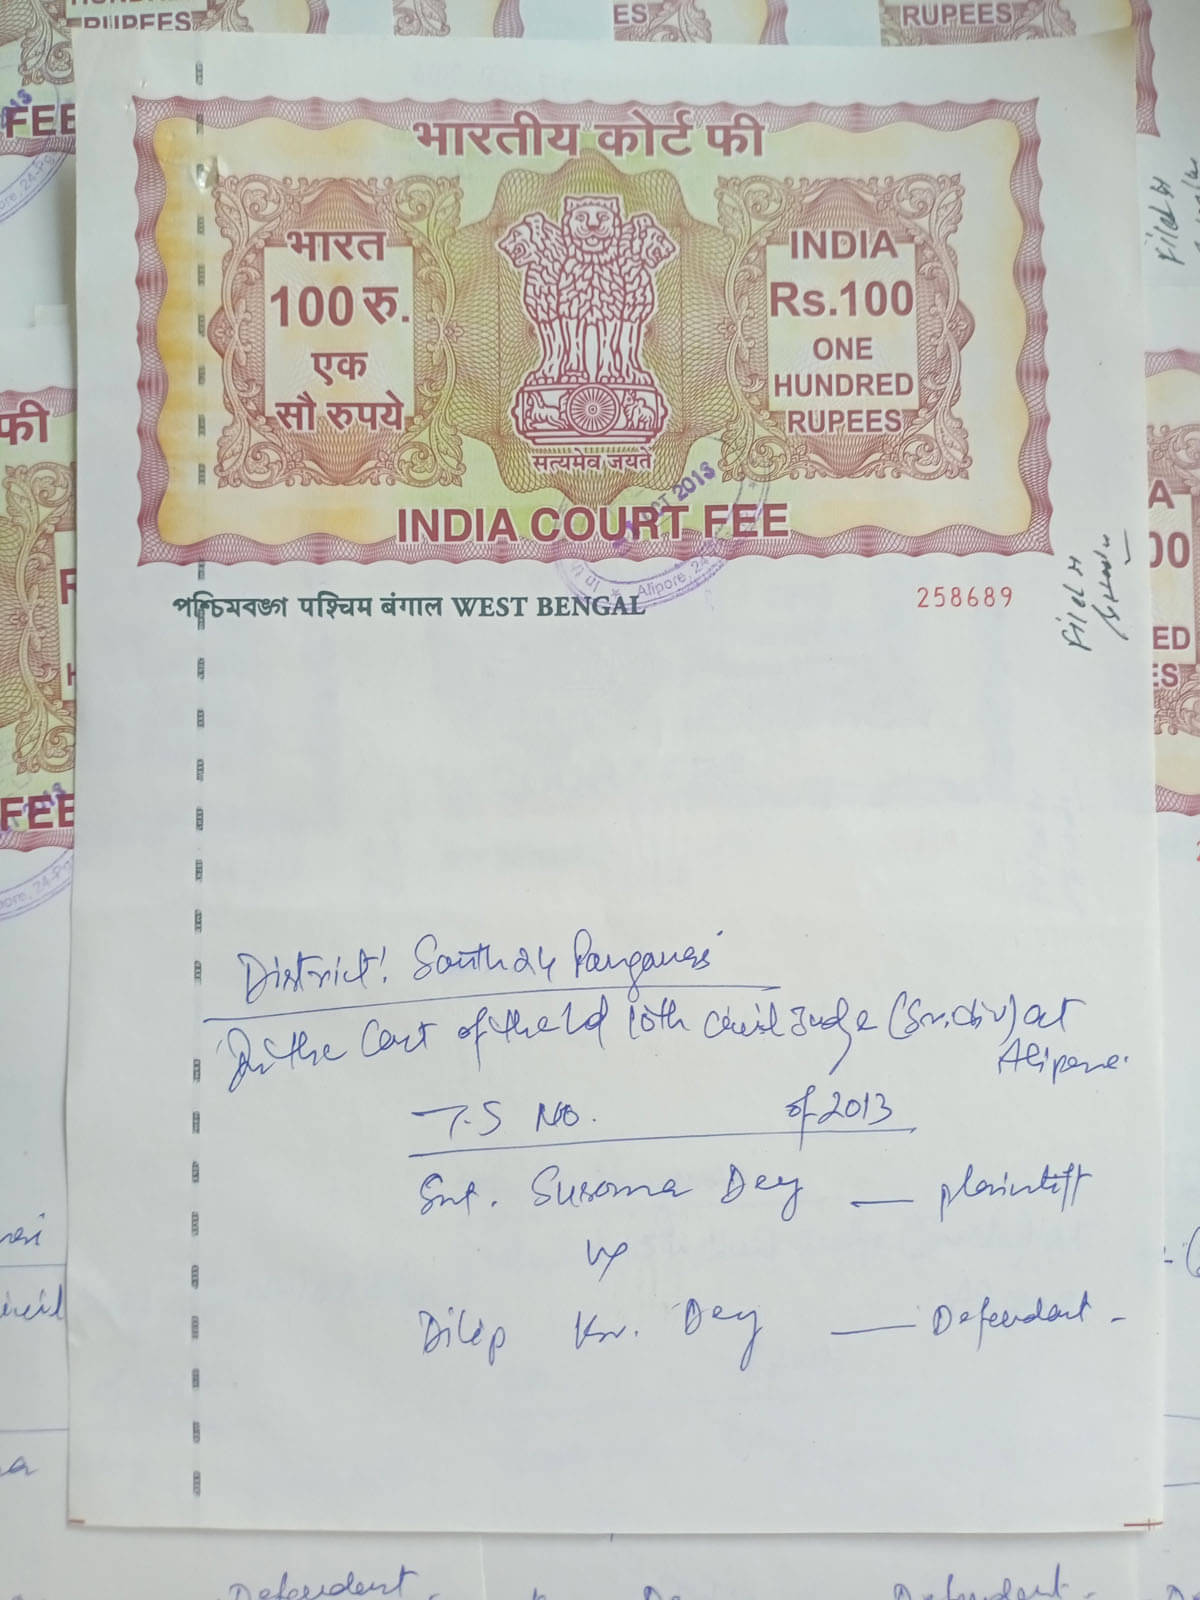 भारतीय कोर्ट फी
भारत
100 रु.
एक
सौ रुपये
सत्यमेव जयते
INDIA
Rs.100
ONE
HUNDRED
RUPEES
INDIA COURT FEE
2013
Alipore, 24
পশ্চিমবঙ্গ पश्चिम बंगाल WEST BENGAL
258689
Filed
District: South 24 Parganas
In the Cort of the Ld 10th Civil Judge (Sr. div) at
Alipore.
T.S No. of 2013
Smt. Susoma Dey — plaintiff
vs
Dilip Kr. Dey — Defendant -
RUPEES
ES
RUPEES
FEE
फी
FEE
Defendant -
Defendant -